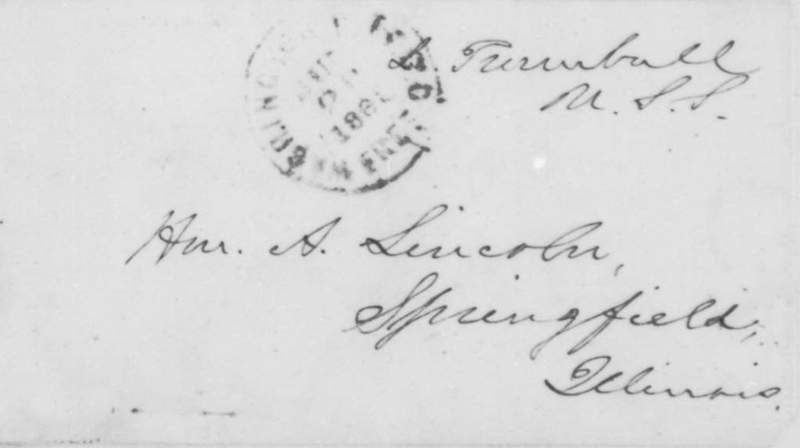 L Trumbull
U.S.S.
WASHINGTON FREE
1860
Hon. A. Lincoln,
Springfield,
Illinois.